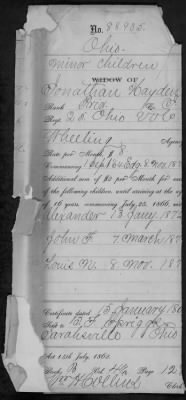 No. 88955.
Ohio.
minor children
WIDOW OF
Jonathan Hayden
Rank Prvt. Co. E
Regt 25 Ohio Vols
Wheeling Agency
Rate per Month, $ 8
Commencing 1 Sept 64 Edg 8 Nov 187
Additional sum of $2 per Month for each
of the following children, until arriving at the age
of 16 years, commencing July 25, 1866, viz:
Alexander 13 Jany 187
John F. 7 March 187
Louis N. 8 Nov. 187
Certificate dated 15 January 186
Sent to
Sarahsville Ohio
Act 14th July, 1862.
Book B Vol. Page 12
Wm H Collins